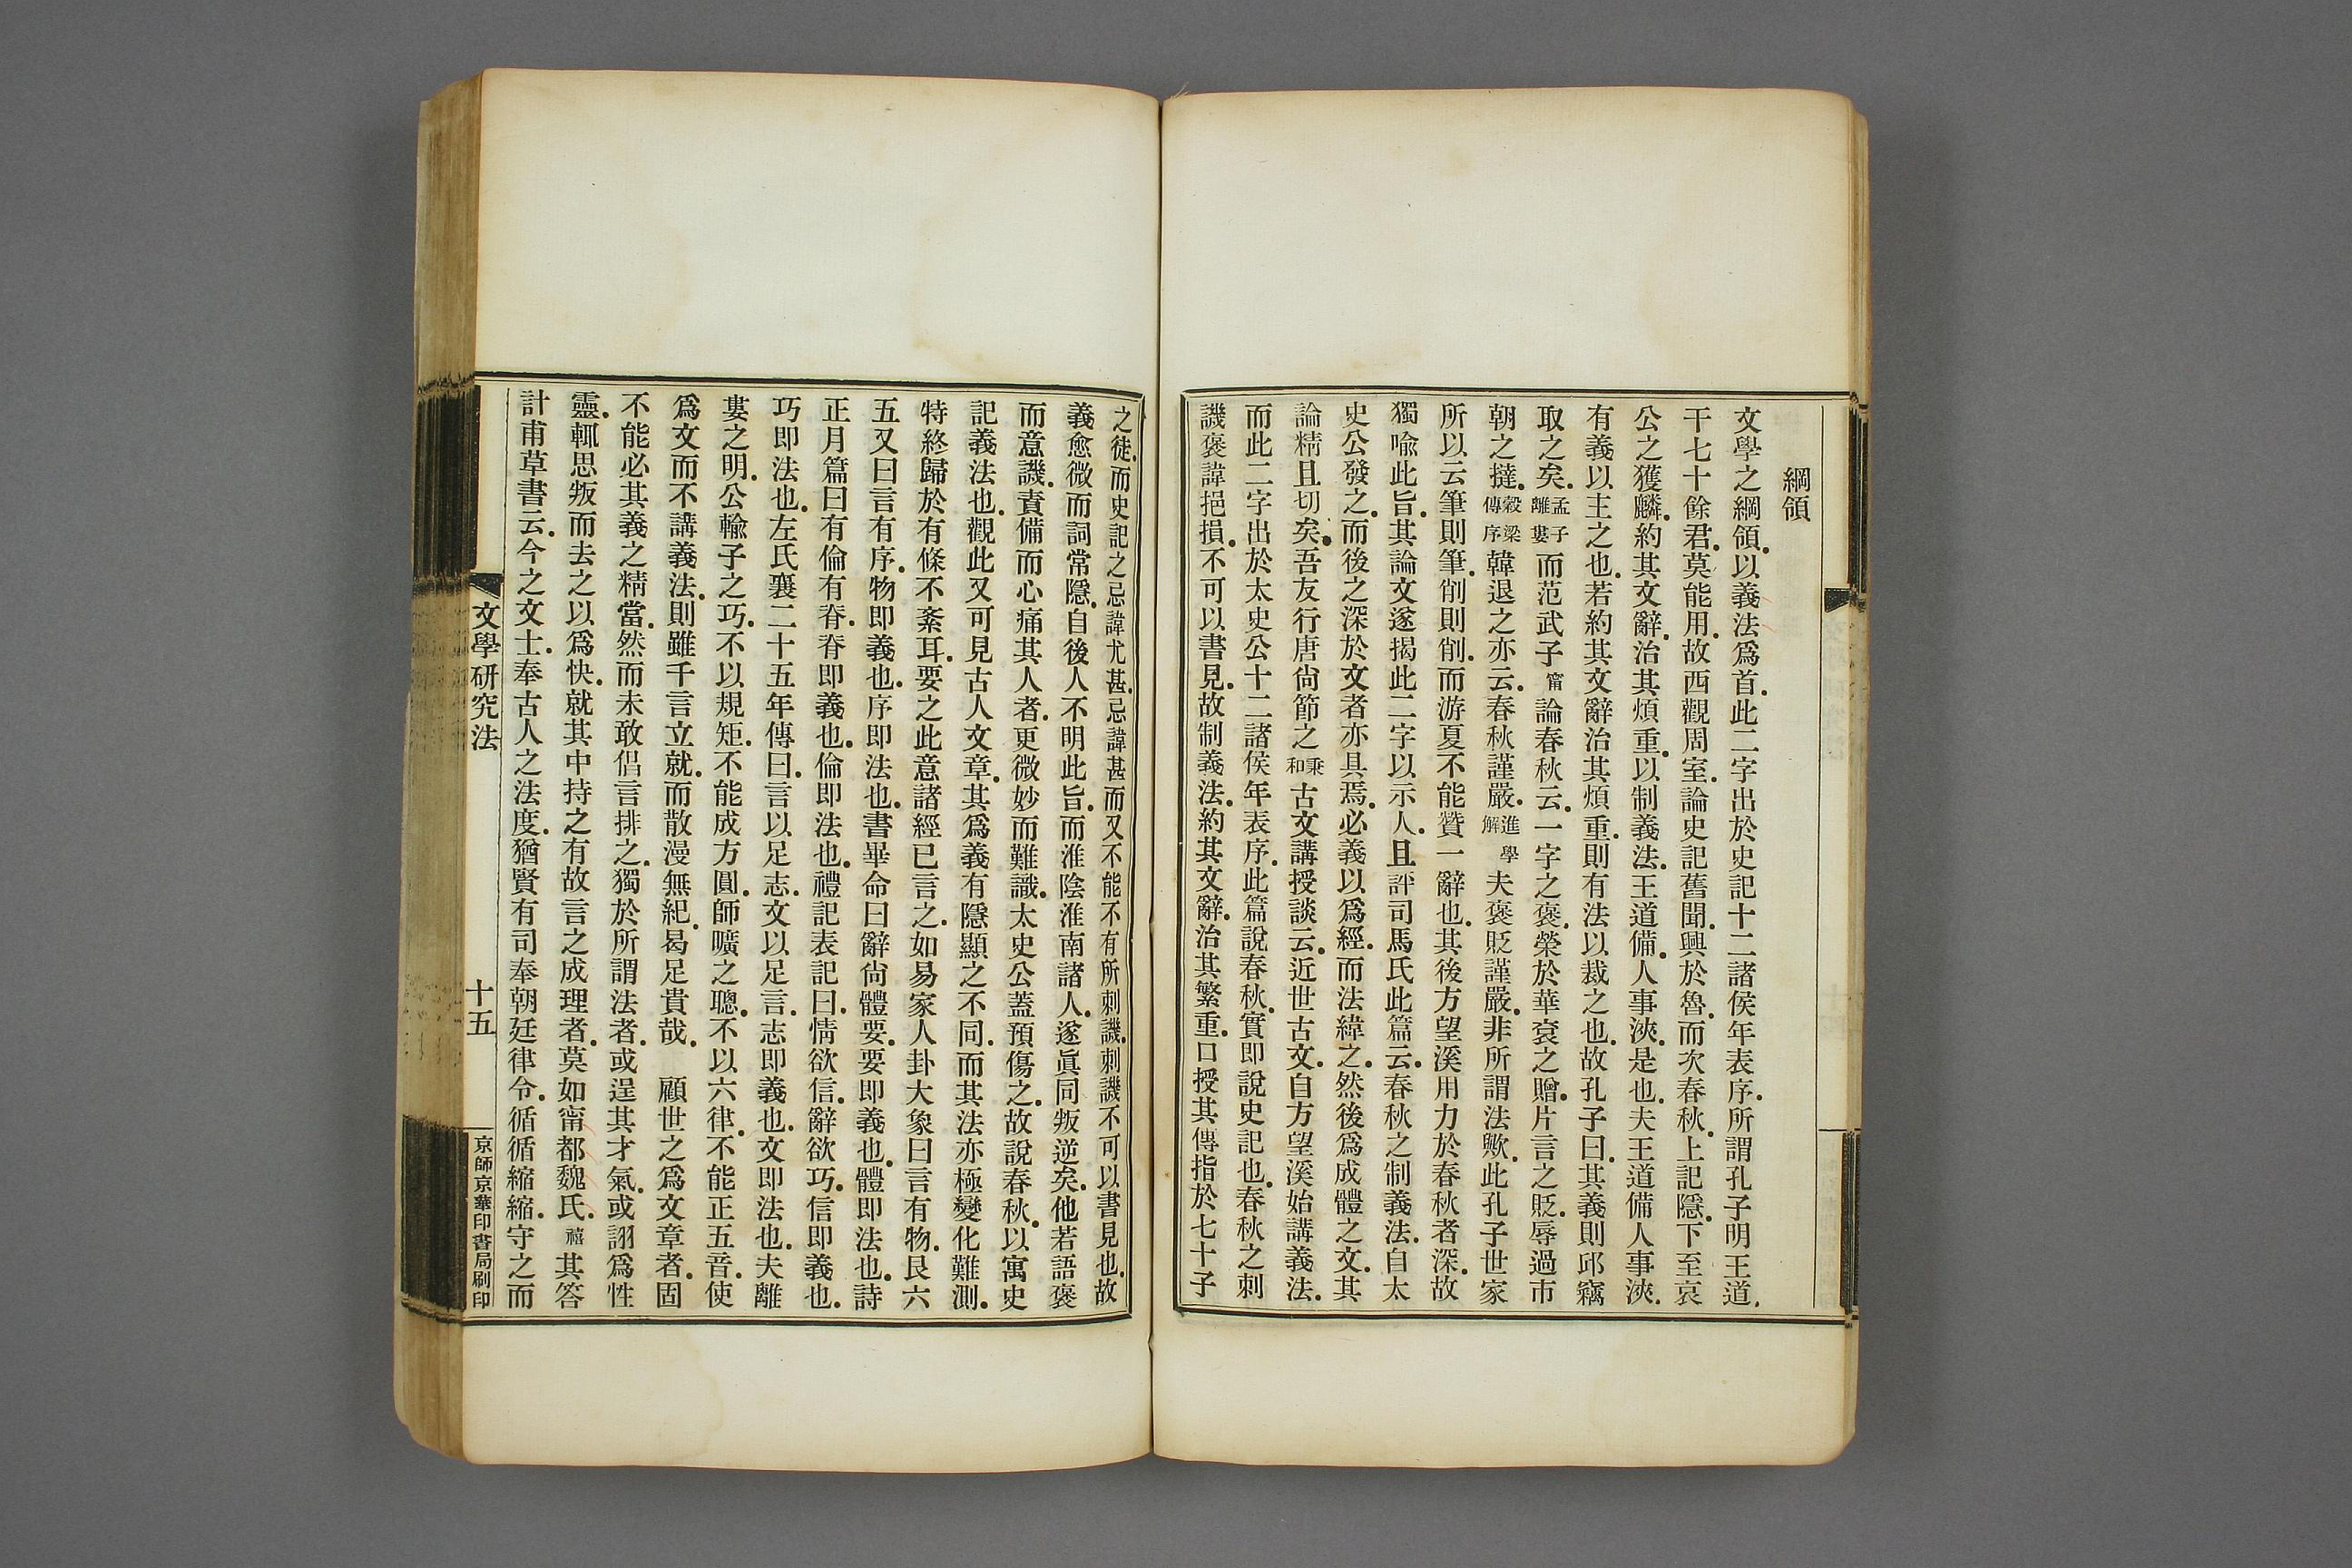 綱領
文學之綱領．以義法爲首．此二字出於史記十二諸侯年表序．所謂孔子明王道．
干七十餘君．莫能用．故西觀周室．論史記舊聞．興於魯．而次春秋．上記隱．下至哀
公之獲麟．約其文辭．治其煩重．以制義法．王道備．人事浹．是也．夫王道備人事浹．
有義以主之也．若約其文辭治其煩重．則有法以裁之也．故孔子曰．其義則邱竊
取之矣．孟子離婁而范武子甯論春秋云．一字之褒．榮於華袞之贈．片言之貶．辱過市
朝之撻．穀梁傳序韓退之亦云．春秋謹嚴．進學解夫褒貶謹嚴．非所謂法歟．此孔子世家
所以云筆則筆．削則削．而游夏不能贊一辭也．其後方望溪用力於春秋者深．故
獨喻此旨．其論文遂揭此二字以示人．且評司馬氏此篇云．春秋之制義法．自太
史公發之．而後之深於文者亦具焉．必義以爲經．而法緯之．然後爲成體之文．其
論精且切矣．吾友行唐尙節之秉和古文講授談云．近世古文．自方望溪始講義法．
而此二字出於太史公十二諸侯年表序．此篇說春秋．實即說史記也．春秋之刺
譏褒諱挹損．不可以書見．故制義法．約其文辭．治其繁重．口授其傳指於七十子
之徒．而史記之忌諱尤甚．忌諱甚而又不能不有所刺譏．刺譏不可以書見也．故
義愈微而詞常隱．自後人不明此旨．而淮陰淮南諸人．遂眞同叛逆矣．他若語褒
而意譏．責備而心痛其人者．更微妙而難識．太史公蓋預傷之．故說春秋．以寓史
記義法也．觀此又可見古人文章．其爲義有隱顯之不同．而其法亦極變化難測．
特終歸於有條不紊耳．要之此意諸經已言之．如易家人卦大象曰言有物．艮六
五又曰言有序．物即義也．序即法也．書畢命曰辭尙體要．要即義也．體即法也．詩
正月篇曰有倫有脊．脊即義也．倫即法也．禮記表記曰．情欲信．辭欲巧．信即義也．
巧即法也．左氏襄二十五年傳曰．言以足志．文以足言．志即義也．文即法也．夫離
婁之明．公輸子之巧．不以規矩．不能成方圓．師曠之聰．不以六律．不能正五音．使
爲文而不講義法．則雖千言立就．而散漫無紀．曷足貴哉．　顧世之爲文章者．固
不能必其義之精當．然而未敢倡言排之．獨於所謂法者．或逞其才氣．或詡爲性
靈．輒思叛而去之以爲快．就其中持之有故言之成理者．莫如甯都魏氏．禧其答
計甫草書云．今之文士．奉古人之法度．猶賢有司奉朝廷律令．循循縮縮．守之而
文學研究法
十五
京師京華印書局刷印